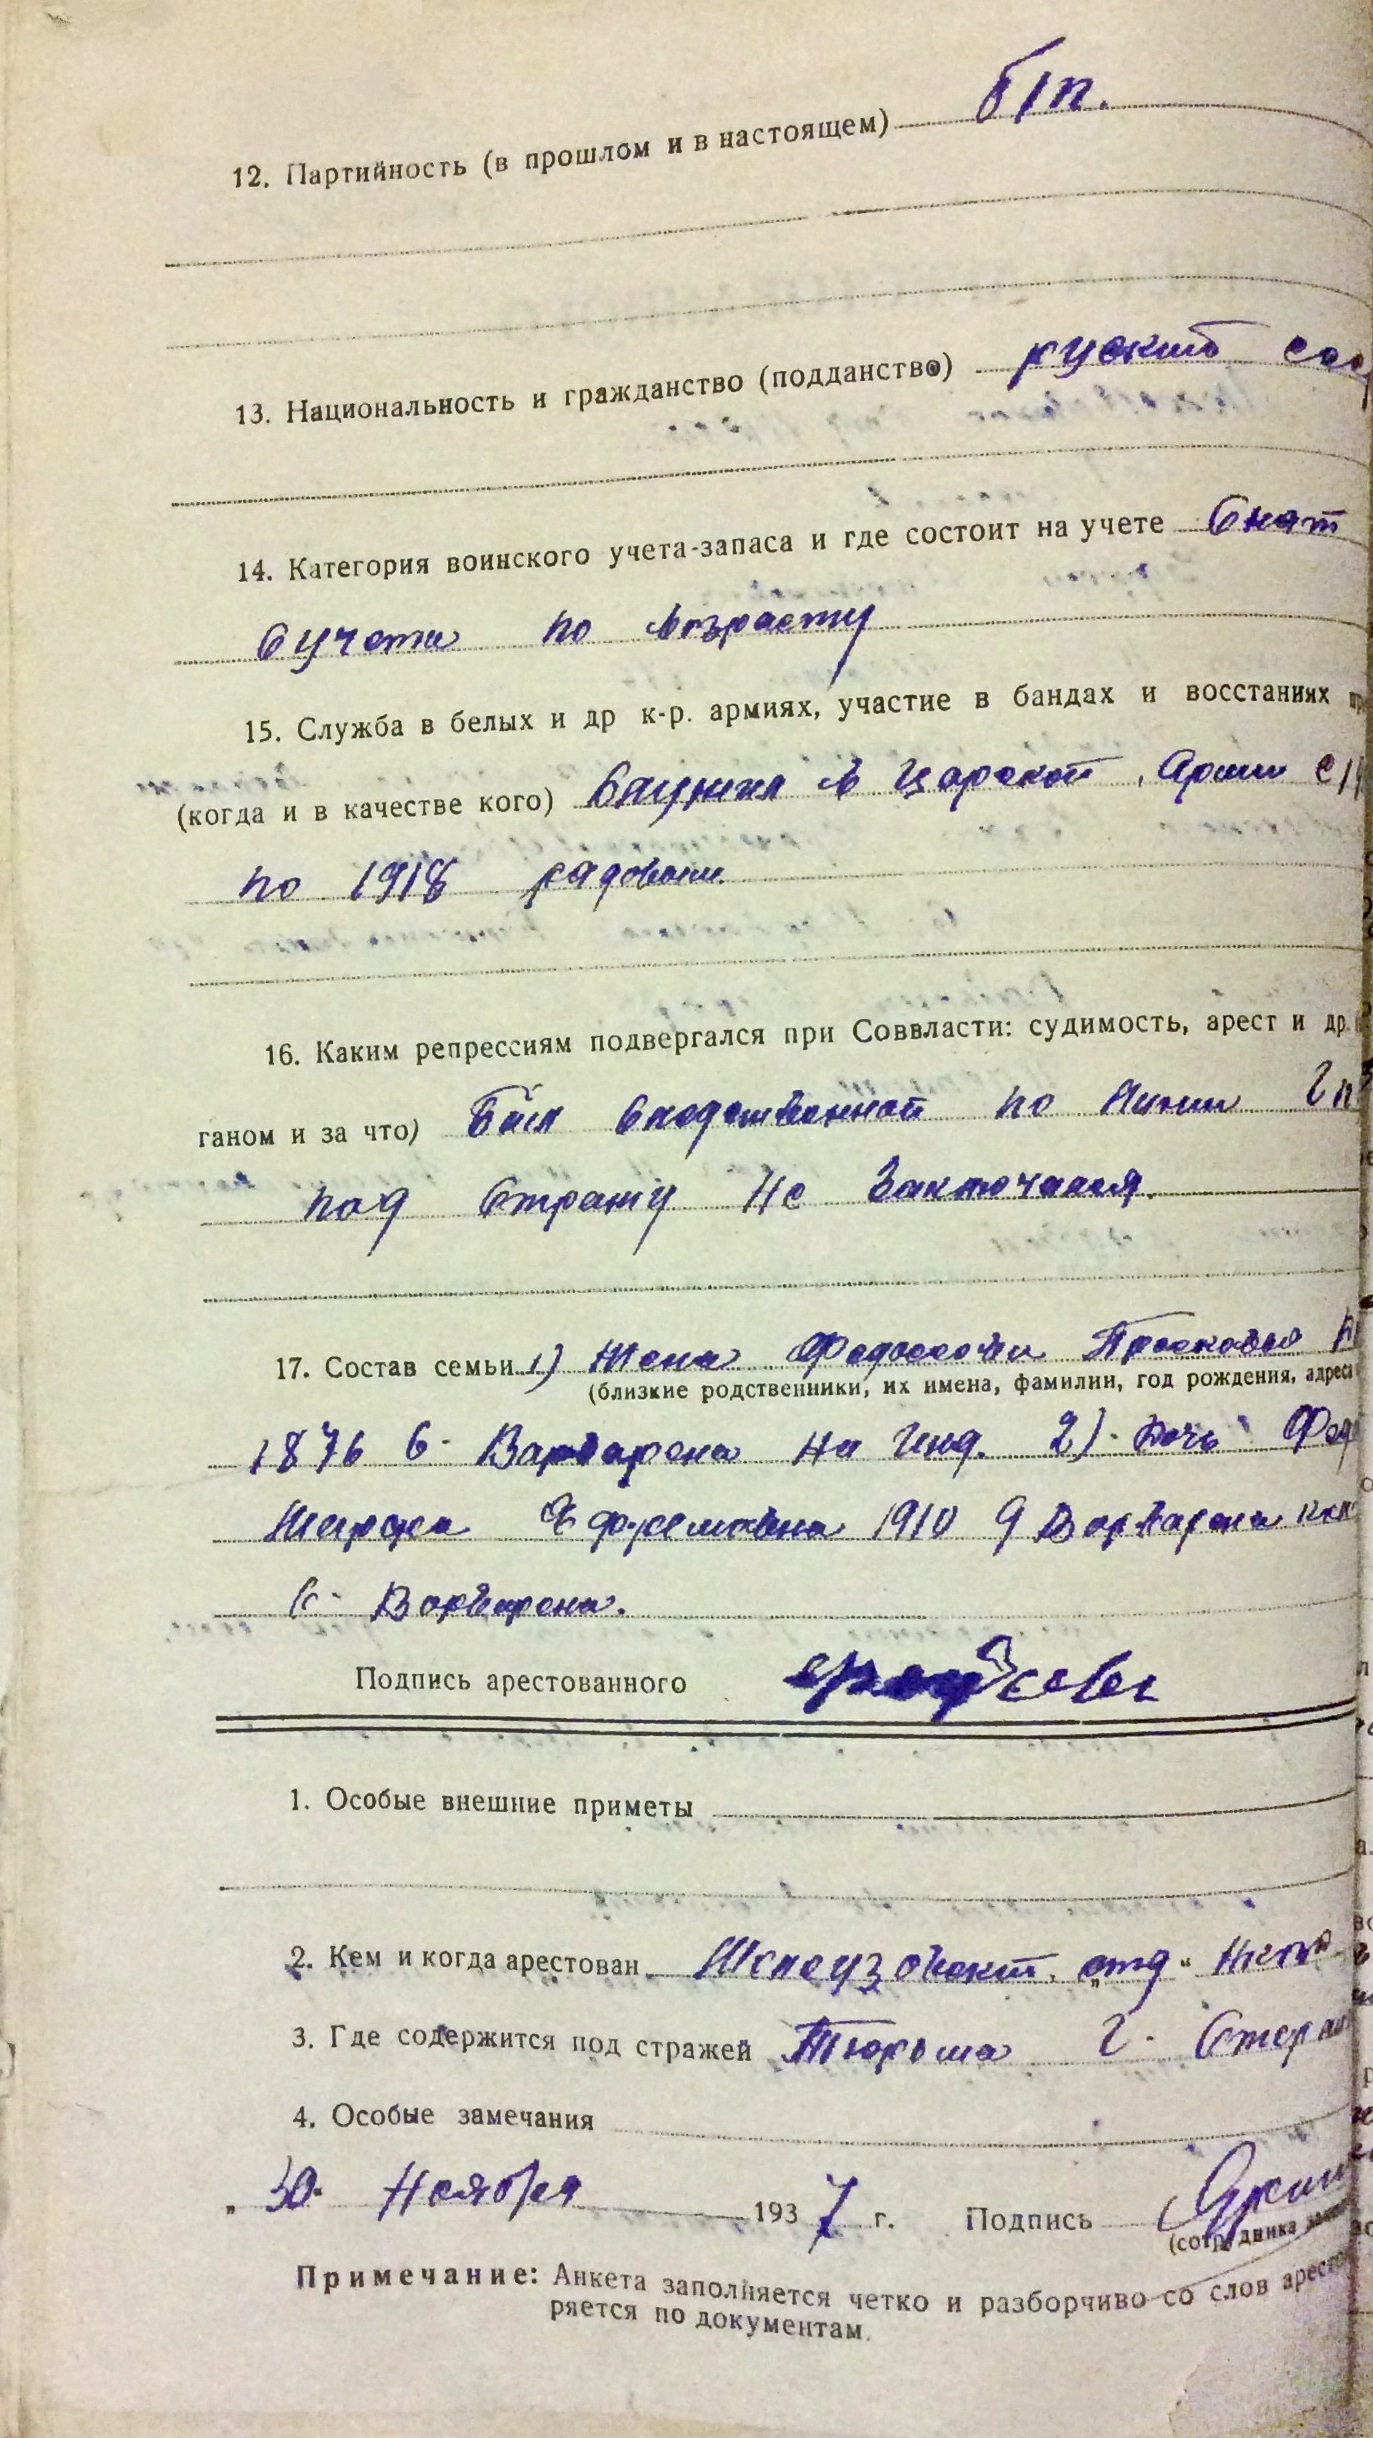 12. Партийность (в прошлом и в настоящем) б/п.
13. Национальность и гражданство (подданство) руский
14. Категория воинского учета-запаса и где состоит на учете Снят
с учета по возрасту
15. Служба в белых и др к-р. армиях, участие в бандах и восстаниях
(когда и в качестве кого) Служил в Царской Армии с
по 1918 рядовым.
16. Каким репрессиям подвергался при Соввласти: судимость, арест и др.
ганом и за что) Был Следственной по линии
под Стражу Не Заключался.
17. Состав семьи 1) Жена Федосеева Просковья
(близкие родственники, их имена, фамилии, год рождения, адреса
1876 с. Варварена на Инд. 2). Дочь
Марфа 1910 д Варварена
с. Варварена.
Подпись арестованного
1. Особые внешние приметы
2. Кем и когда арестован отд.
3. Где содержится под стражей Тюрьма г.
4. Особые замечания
„ 30. Ноября 1937 г. Подпись
(сотрудника
Примечание: Анкета заполняется четко и разборчиво со слов
ряется по документам.